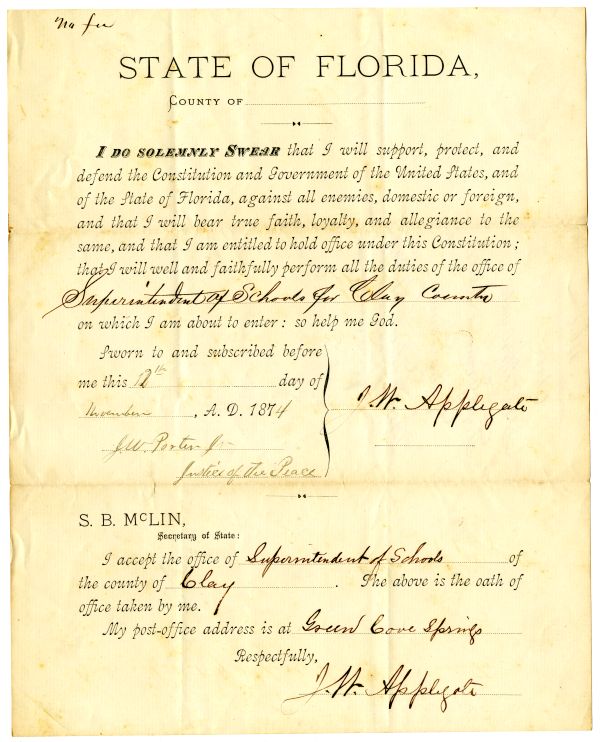 No fee
STATE OF FLORIDA,
COUNTY OF
I DO SOLEMNLY SWEAR that I will support, protect, and
defend the Constitution and Government of the United States, and
of the State of Florida, against all enemies, domestic or foreign,
and that I will bear true faith, loyalty, and allegiance to the
same, and that I am entitled to hold office under this Constitution;
that I will well and faithfully perform all the duties of the office of
Superintendent of Schools for Clay County
on which I am about to enter: so help me God.
Sworn to and subscribed before
me this 12th day of
November, A. D. 1874
J. W. Applegate
J W. Porter Jr
Justice of the Peace
S. B. McLIN,
Secretary of State:
I accept the office of Superintendent of Schools of
the county of Clay. The above is the oath of
office taken by me.
My post-office address is at Green Cove Springs
Respectfully,
J. W. Applegate